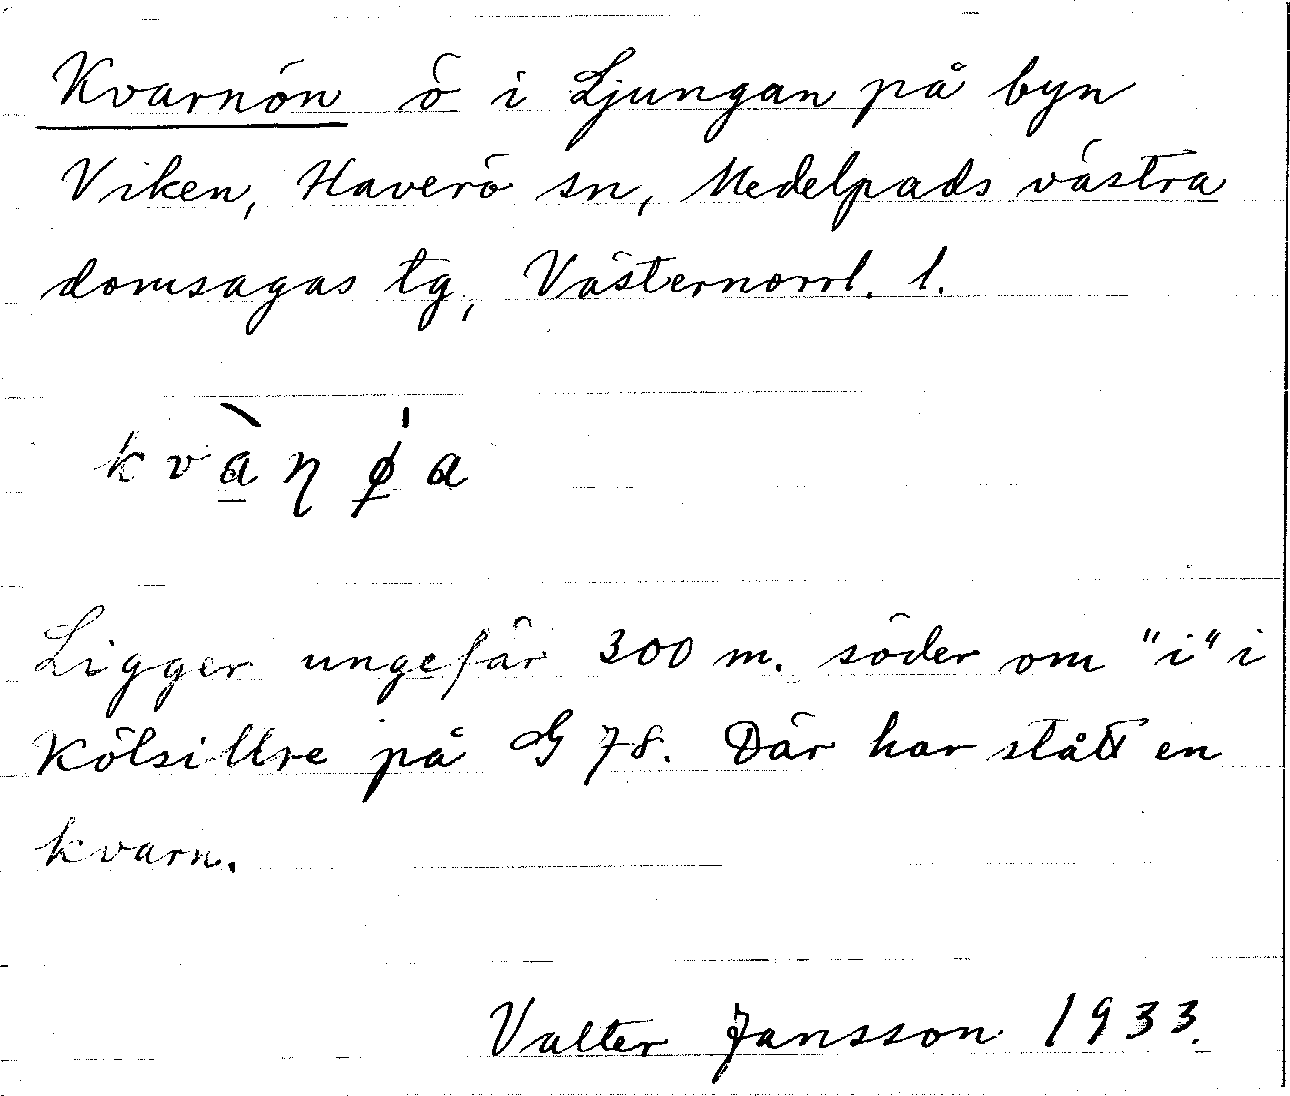 Kvarnön ö i Ljungan på byn
Viken, Haverö sn, Medelpads västra
domsagas tg, Västernorrl. l.
kvàn̨ ǿa
Ligger ungefär 300 m. söder om "i" i
Kölsillre på G 78. Där har stått en
kvarn.
Valter Jansson 1933.